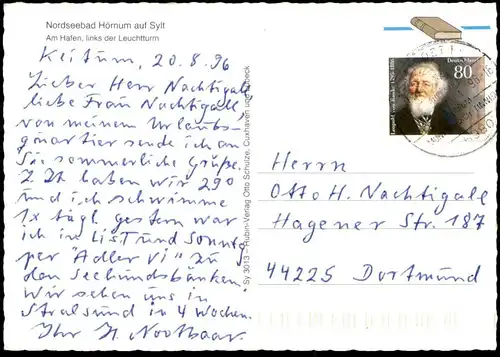 Nordseebad Hörnum auf Sylt
Am Hafen, links der Leuchtturm
Keitum, 20.8.96
Lieber Herr Nachtigall
liebe Frau Nachtigall,
von meinem Urlaubs-
quartier sende ich an
Sie sommerliche Grüße.
Z. Zt. haben wir 29°
und ich schwimme
1x tägl. gestern war
ich in List und Sonntg
per "Adler VI" zu
den Seehundsbänken.
Wir sehen uns in
Stralsund in 4 Wochen.
Ihr H. Nootbaar
Sy 3013 - Rubin-Verlag Otto Schulze, Cuxhaven und
Deutsche
80
Leopold von Ranke 1795-1886
Herrn
Otto H. Nachtigall
Hagener Str. 187
44225 Dortmund